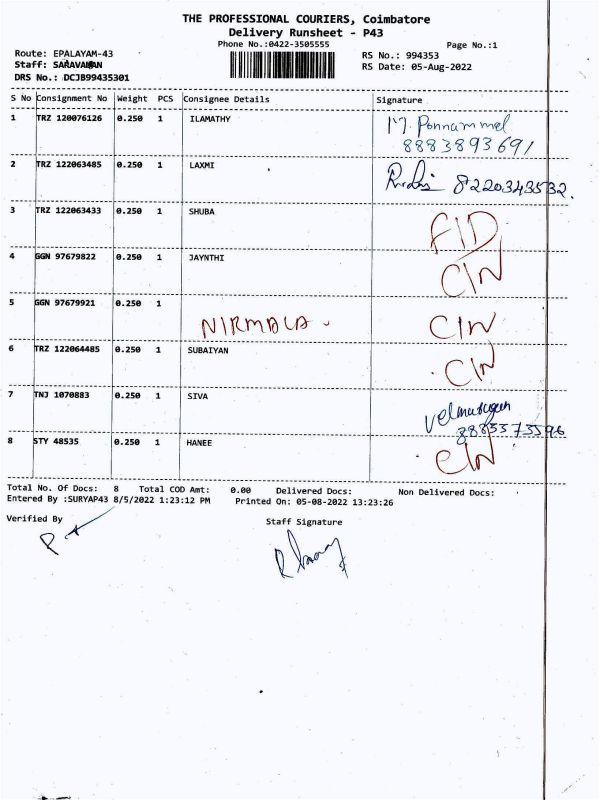 THE PROFESSIONAL COURIERS, Coimbatore
Delivery Runsheet - P43
Phone No.:0422-3505555 Page No.:1
Route: EPALAYAM-43 RS No.: 994353
Staff: SARAVANAN RS Date: 05-Aug-2022
DRS No.: DCJB99435301
S No Consignment No Weight PCS Consignee Details Signature
1 TRZ 120076126 0.250 1 ILAMATHY M. Ponnammel
8883893691
2 TRZ 122063485 0.250 1 LAXMI 8220343532.
3 TRZ 122063433 0.250 1 SHUBA F/D
4 GGN 97679822 0.250 1 JAYNTHI C/N
5 GGN 97679921 0.250 1
NIRMALA C/N
6 TRZ 122064485 0.250 1 SUBAIYAN C/N
7 TNJ 1070883 0.250 1 SIVA Velmurugan
8 STY 48535 0.250 1 HANEE C/N
Total No. Of Docs: 8 Total COD Amt: 0.00 Delivered Docs: Non Delivered Docs:
Entered By :SURYAP43 8/5/2022 1:23:12 PM Printed On: 05-08-2022 13:23:26
Verified By Staff Signature